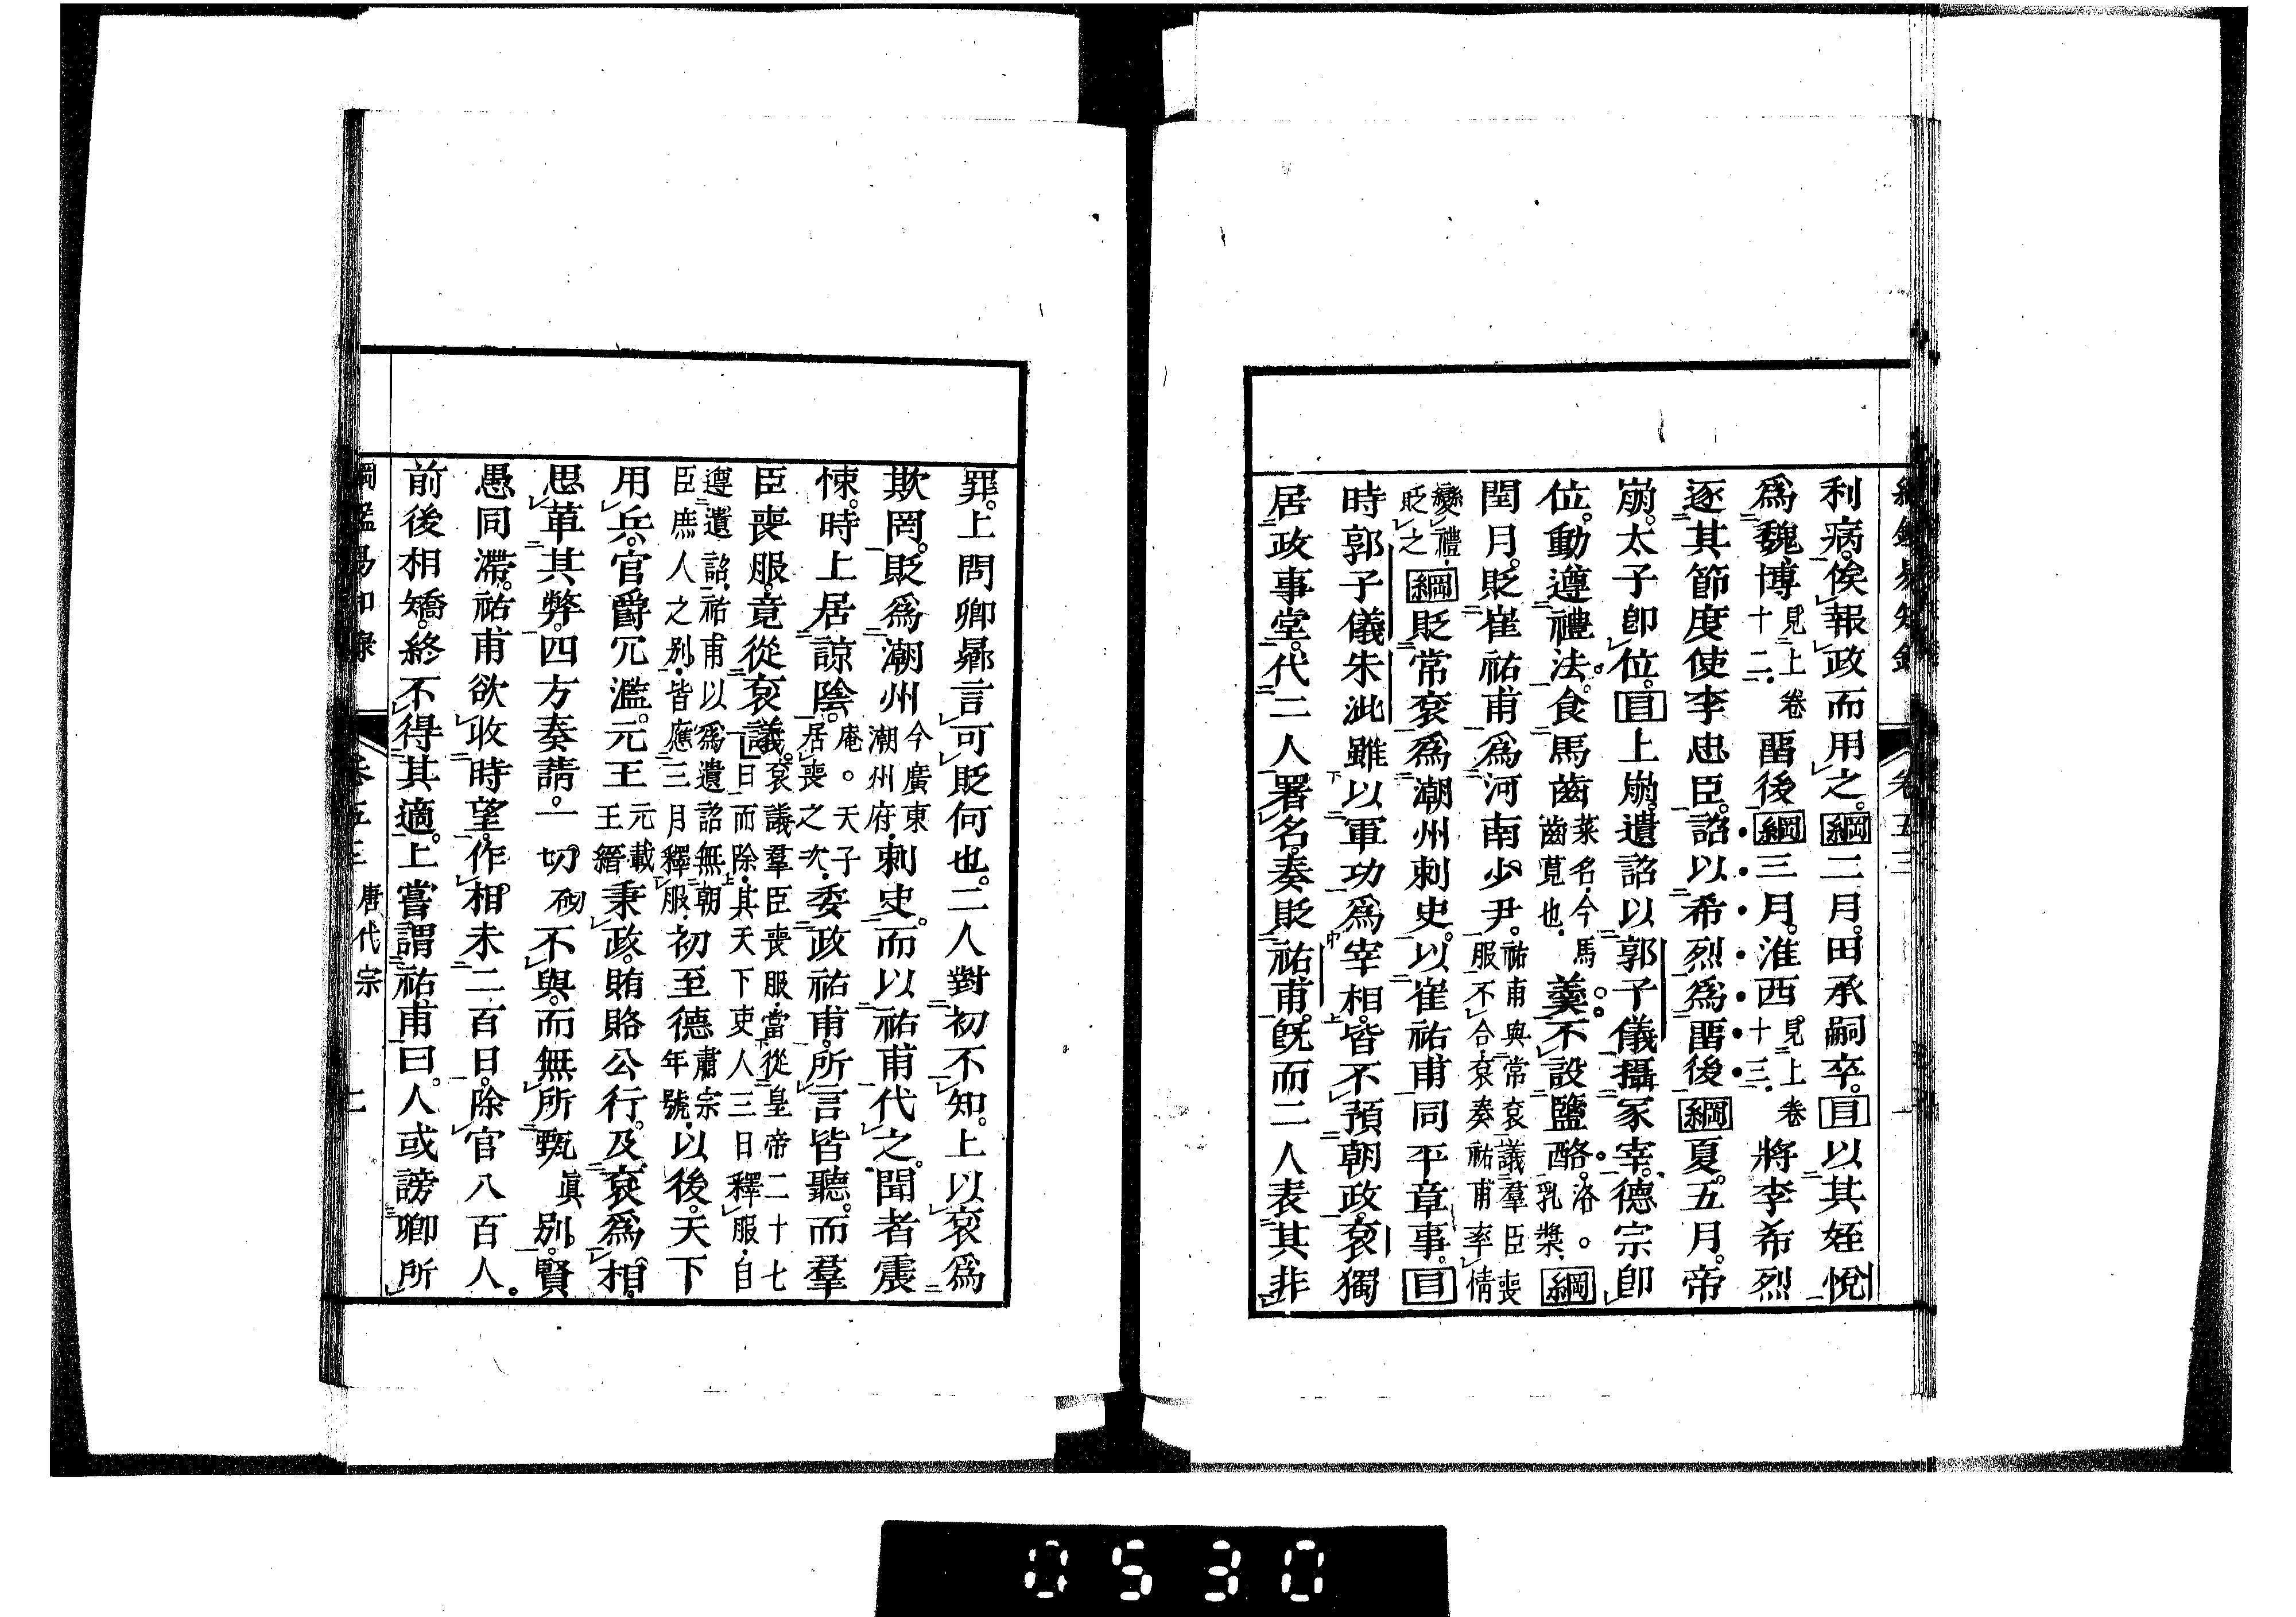 綱鑑易知錄 卷五三
利病。俟報政而用之。綱二月。田承嗣卒。目以其姪悅
爲魏博見上卷十二。畱後綱三月。淮西見上卷十三。將李希烈
逐其節度使李忠臣。詔以希烈爲畱後綱夏。五月。帝
崩。太子卽位。目上崩。遺詔以郭子儀攝冢宰。德宗卽
位。動遵禮法。食馬齒菜名。今馬齒莧也。羹。不設鹽酪。洛。乳漿。綱
閏月。貶崔祐甫爲河南少尹。祐甫與常袞議羣臣喪服不合。袞奏祐甫率情
變禮。貶之綱貶常袞爲潮州刺史。以崔祐甫同平章事。目
時郭子儀朱泚雖以軍功爲宰相。皆不預朝政。袞獨
居政事堂。代二人署名。奏貶祐甫。旣而二人表其非
罪。上問卿曏言可貶何也。二人對初不知。上以袞爲
欺罔。貶爲潮州今廣東潮州府。刺史。而以祐甫代之。聞者震
悚。時上居諒陰。庵。天子居喪之次。委政祐甫。所言皆聽。而羣
臣喪服。竟從袞議。袞議羣臣喪服。當從皇帝二十七日而除。其天下吏人三日釋服。自
遵遺詔。祐甫以爲遺詔無朝臣庶人之別。皆應三月釋服。初至德肅宗年號。以後。天下
用兵。官爵冗濫。元王元載王縉秉政。賄賂公行。及袞爲相。
思革其弊。四方奏請。一切砌不與。而無所甄眞別。賢
愚同滯。祐甫欲收時望。作相未二百日。除官八百人。
前後相矯。終不得其適。上嘗謂祐甫曰。人或謗卿所
綱鑑易知錄 卷五三 唐代宗 二
0530